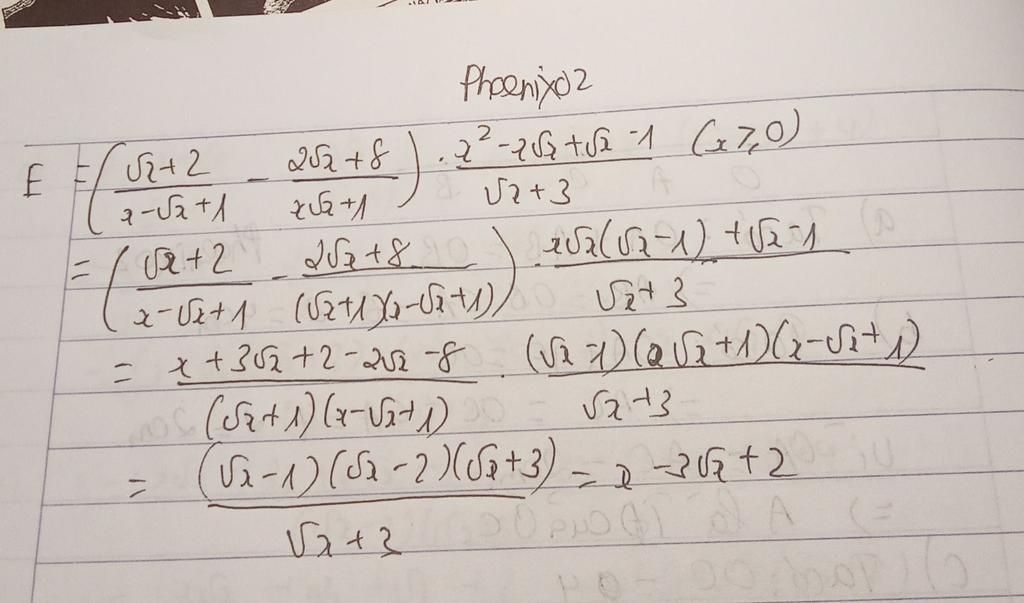 Phoenix02
E = ( (√x+2)/(x-√x+1) - (2√x+8)/(x√x+1) ) . (x²-x√x+√x-1)/(√x+3) (x≥0)
= ( (√x+2)/(x-√x+1) - (2√x+8)/((√x+1)(x-√x+1)) ) . (x√x(√x-1)+√x-1)/(√x+3)
= (x+3√x+2-2√x-8)/((√x+1)(x-√x+1)) . ((√x-1)(√x+1)(x-√x+1))/(√x+3)
= ((√x-1)(√x-2)(√x+3))/(√x+3) = x-3√x+2